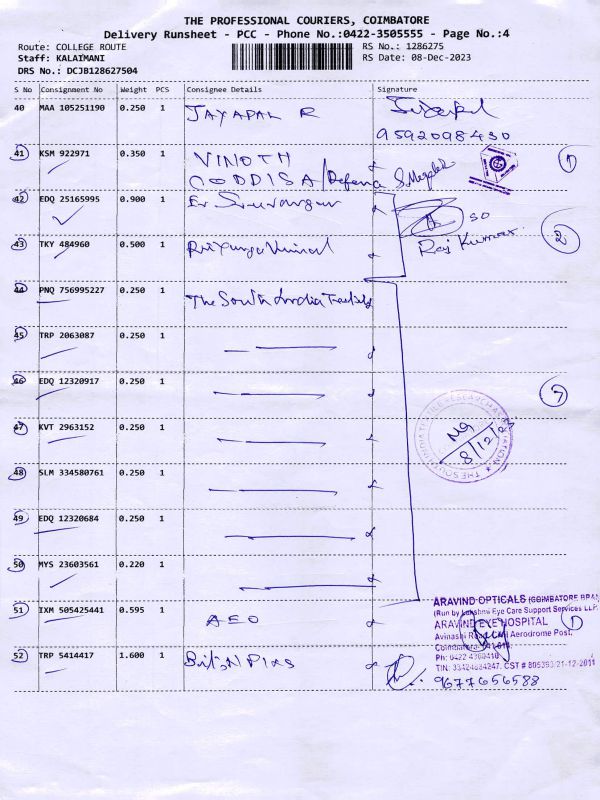 THE PROFESSIONAL COURIERS, COIMBATORE
Delivery Runsheet - PCC - Phone No.:0422-3505555 - Page No.:4
Route: COLLEGE ROUTE
Staff: KALAIMANI
DRS No.: DCJB128627504
RS No.: 1286275
RS Date: 08-Dec-2023
S No Consignment No Weight PCS Consignee Details Signature
40 MAA 105251190 0.250 1 JAYAPAL R
9592098430
41 KSM 922971 0.350 1 VINOTH
/Defence
1
42 EDQ 25165995 0.900 1 Er
Raj Kumar
2
43 TKY 484960 0.500 1
44 PNQ 756995227 0.250 1 The South India
45 TRP 2063087 0.250 1
46 EDQ 12320917 0.250 1
7
47 KVT 2963152 0.250 1
THE SOUTH INDIA TEXTILE RESEARCH ASSOCIATION
8/12/
48 SLM 334580761 0.250 1
49 EDQ 12320684 0.250 1
50 MYS 23603561 0.220 1
51 IXM 505425441 0.595 1 AEO
ARAVIND OPTICALS (COIMBATORE BRAN
(Run by Lakshmi Eye Care Support Services LLP
ARAVIND EYE HOSPITAL
1
Avinashi Road, Civil Aerodrome Post,
Coimbatore-641 014.
Ph: 0422 4360410
52 TRP 5414417 1.600 1
9677656588